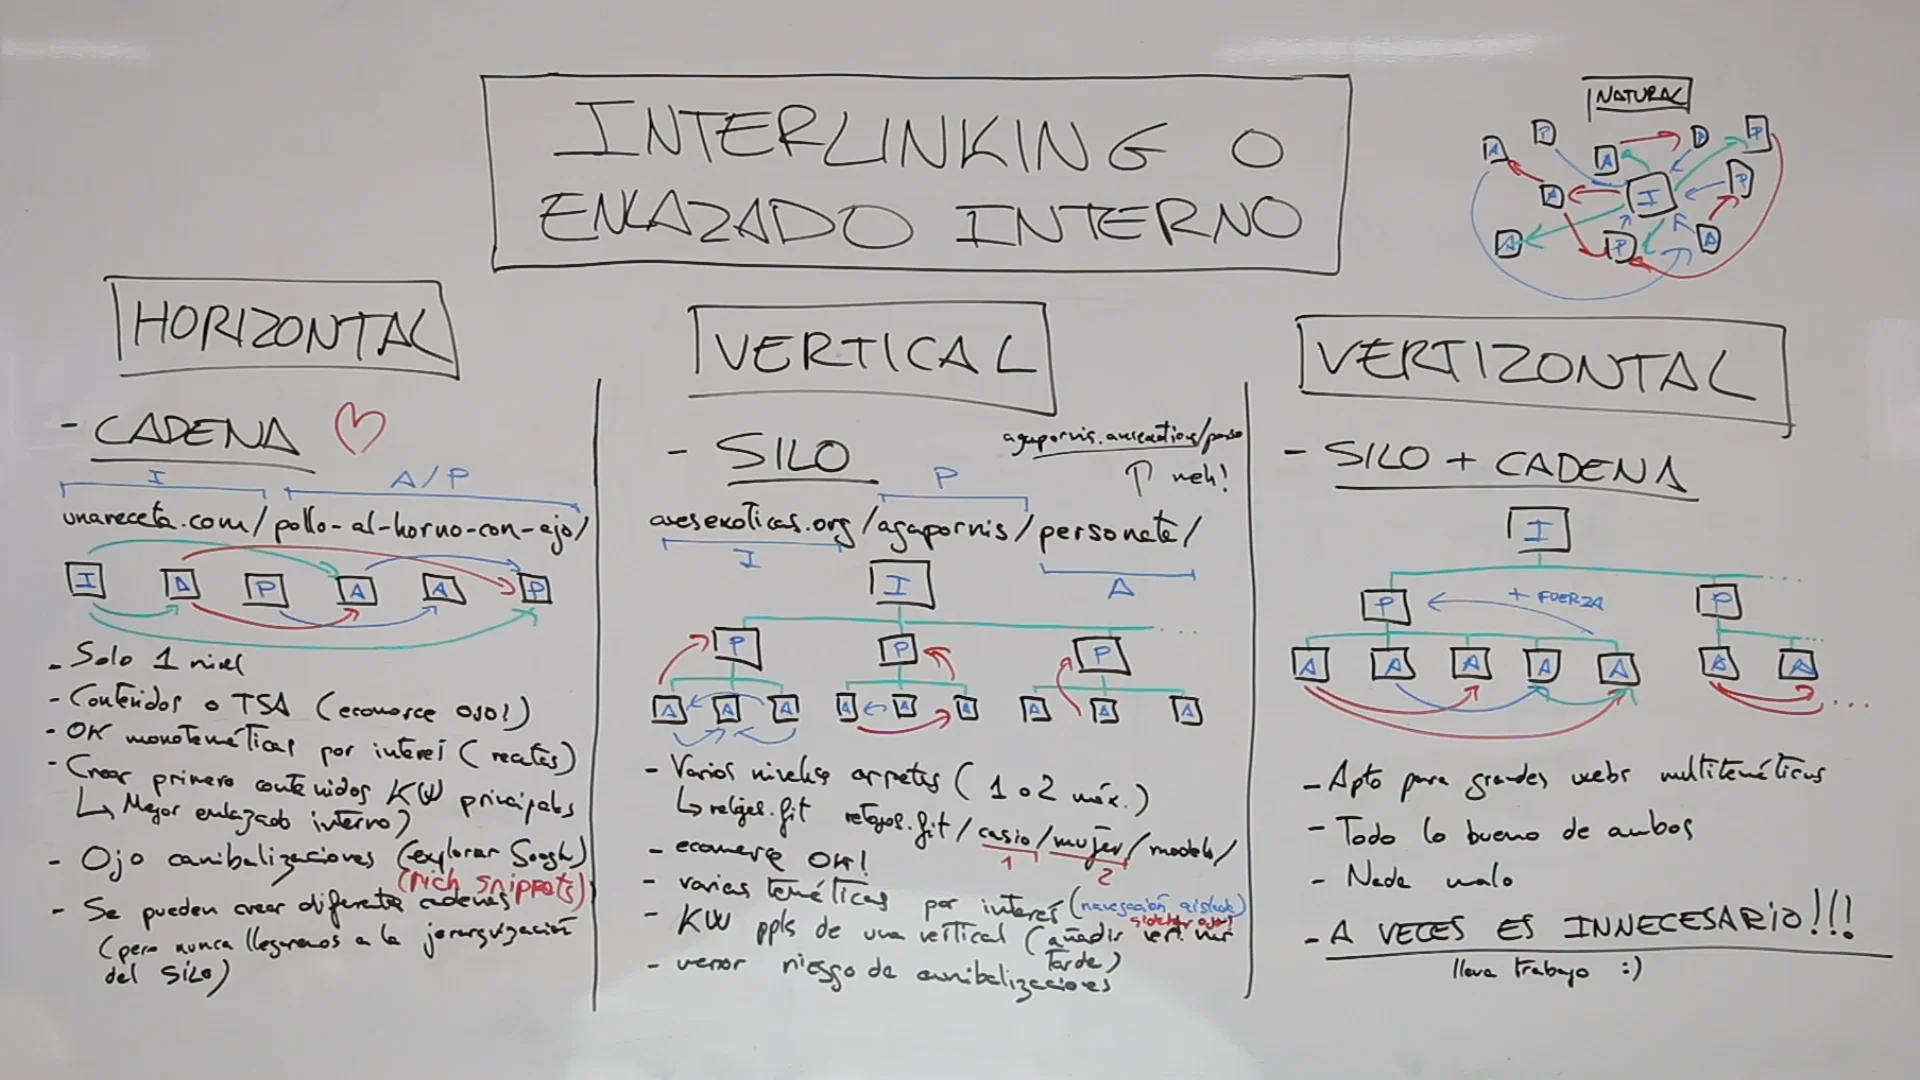 INTERLINKING O
ENLAZADO INTERNO
NATURAL
A
P
A
P
P
A
I
P
A
P
A
HORIZONTAL
- CADENA
I
A/P
unareceta.com/pollo-al-horno-con-ajo/
I A P A A P
- Solo 1 nivel
- Contenidos o TSA (ecomerce ojo!)
- OK monotemáticas por interés (recetas)
- Crear primero contenidos KW principales
↳ Mejor enlazado interno)
- Ojo canibalizaciones (explorar Google)
(rich snippets)
- Se pueden crear diferentes cadenas
(pero nunca llegaremos a la jerarquización
del SILO)
VERTICAL
- SILO
agapornis.avesexoticas/perso
↑ meh!
P
avesexoticas.org/agapornis/personata/
I
A
I
P P P
A A A A A A A A A
- Varios niveles carpetas (1 o 2 máx.)
↳ relojes.fit relojes.fit/casio/mujer/modelo/
1
2
- ecomerce OK!
- varias temáticas por interés (navegación aislada)
sidebar ojo!
- KW ppls de una vertical (añadir vert. más
tarde)
- menor riesgo de canibalizaciones
VERTIZONTAL
- SILO + CADENA
I
P + FUERZA P
A A A A A A A
- Apto para grandes webs multitemáticas
- Todo lo bueno de ambos
- Nada malo
- A VECES ES INNECESARIO!!!
lleva trabajo :)